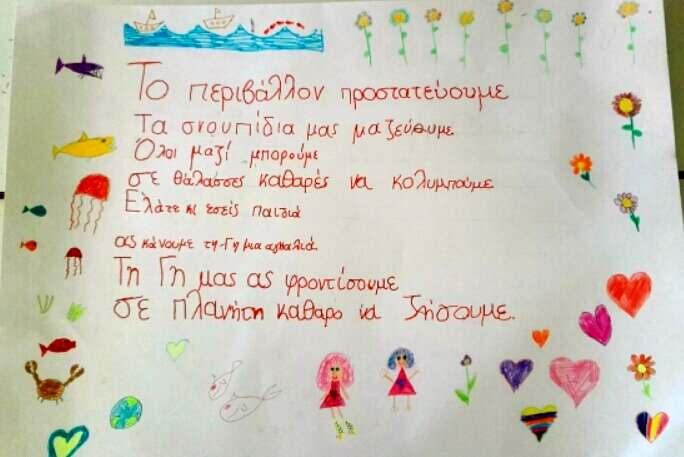 Το περιβάλλον προστατεύουμε
Τα σκουπίδια μας μαζεύουμε
Όλοι μαζί μπορούμε
σε θάλασσες καθαρές να κολυμπούμε
Ελάτε κι εσείς παιδιά
ας κάνουμε τη Γη μια αγκαλιά.
Τη Γη μας ας φροντίσουμε
σε πλανήτη καθαρό να ζήσουμε.